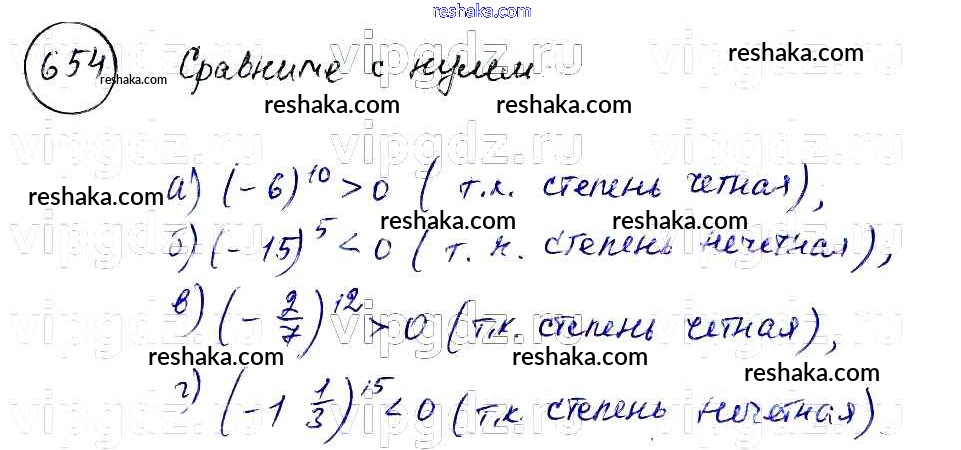 reshaka.com
654 Сравните с нулем
reshaka.com
reshaka.com
reshaka.com reshaka.com
vipgdz.ru vipgdz.ru vipgdz.ru
а) (-6)^10 > 0 (т.к. степень четная),
reshaka.com reshaka.com reshaka.com
б) (-15)^5 < 0 (т.к. степень нечетная),
в) (-2/7)^12 > 0 (т.к. степень четная),
reshaka.com reshaka.com reshaka.com
г) (-1 1/3)^15 < 0 (т.к. степень нечетная)